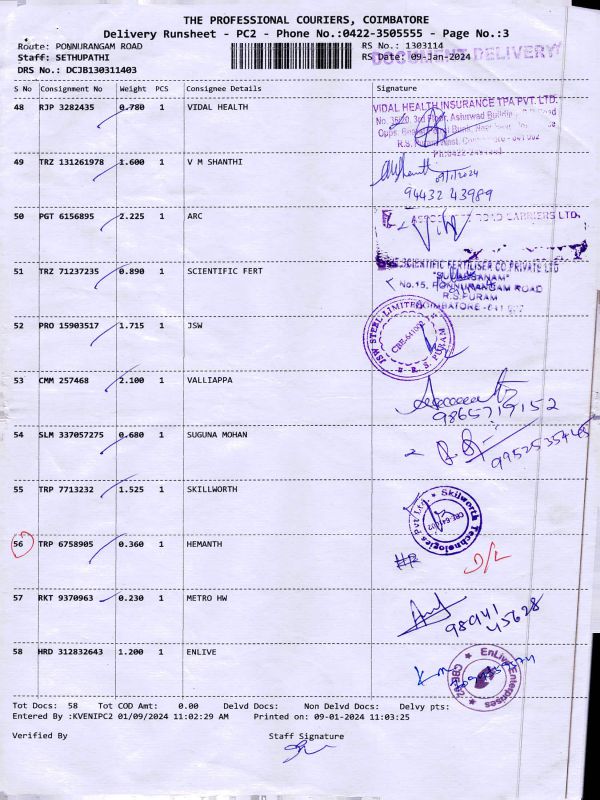 THE PROFESSIONAL COURIERS, COIMBATORE
Delivery Runsheet - PC2 - Phone No.:0422-3505555 - Page No.:3
Route: PONNURANGAM ROAD RS No.: 1303114
Staff: SETHUPATHI RS Date: 09-Jan-2024 DOCUMENT DELIVERY
DRS No.: DCJB130311403
S No Consignment No Weight PCS Consignee Details Signature
48 RJP 3282435 0.780 1 VIDAL HEALTH
VIDAL HEALTH INSURANCE TPA PVT. LTD.
49 TRZ 131261978 1.600 1 V M SHANTHI
09/1/2024
94432 43989
50 PGT 6156895 2.225 1 ARC
ROAD CARRIERS LTD.
51 TRZ 71237235 0.890 1 SCIENTIFIC FERT
SCIENTIFIC FERTILISER CO.PRIVATE LTD
No.15, PONNURANGAM ROAD
R.S.PURAM
COIMBATORE
52 PRO 15903517 1.715 1 JSW
JSW STEEL LIMITED
R. S. PURAM
CBE-641002
53 CMM 257468 2.100 1 VALLIAPPA
9865719152
54 SLM 337057275 0.680 1 SUGUNA MOHAN
55 TRP 7713232 1.525 1 SKILLWORTH
Skilworth Technologies Pvt Ltd.
56 TRP 6758905 0.360 1 HEMANTH
D/L
57 RKT 9370963 0.230 1 METRO HW
98941
45628
58 HRD 312832643 1.200 1 ENLIVE
EnLive Enterprises
Tot Docs: 58 Tot COD Amt: 0.00 Delvd Docs: Non Delvd Docs: Delvy pts:
Entered By :KVENIPC2 01/09/2024 11:02:29 AM Printed on: 09-01-2024 11:03:25
Verified By Staff Signature